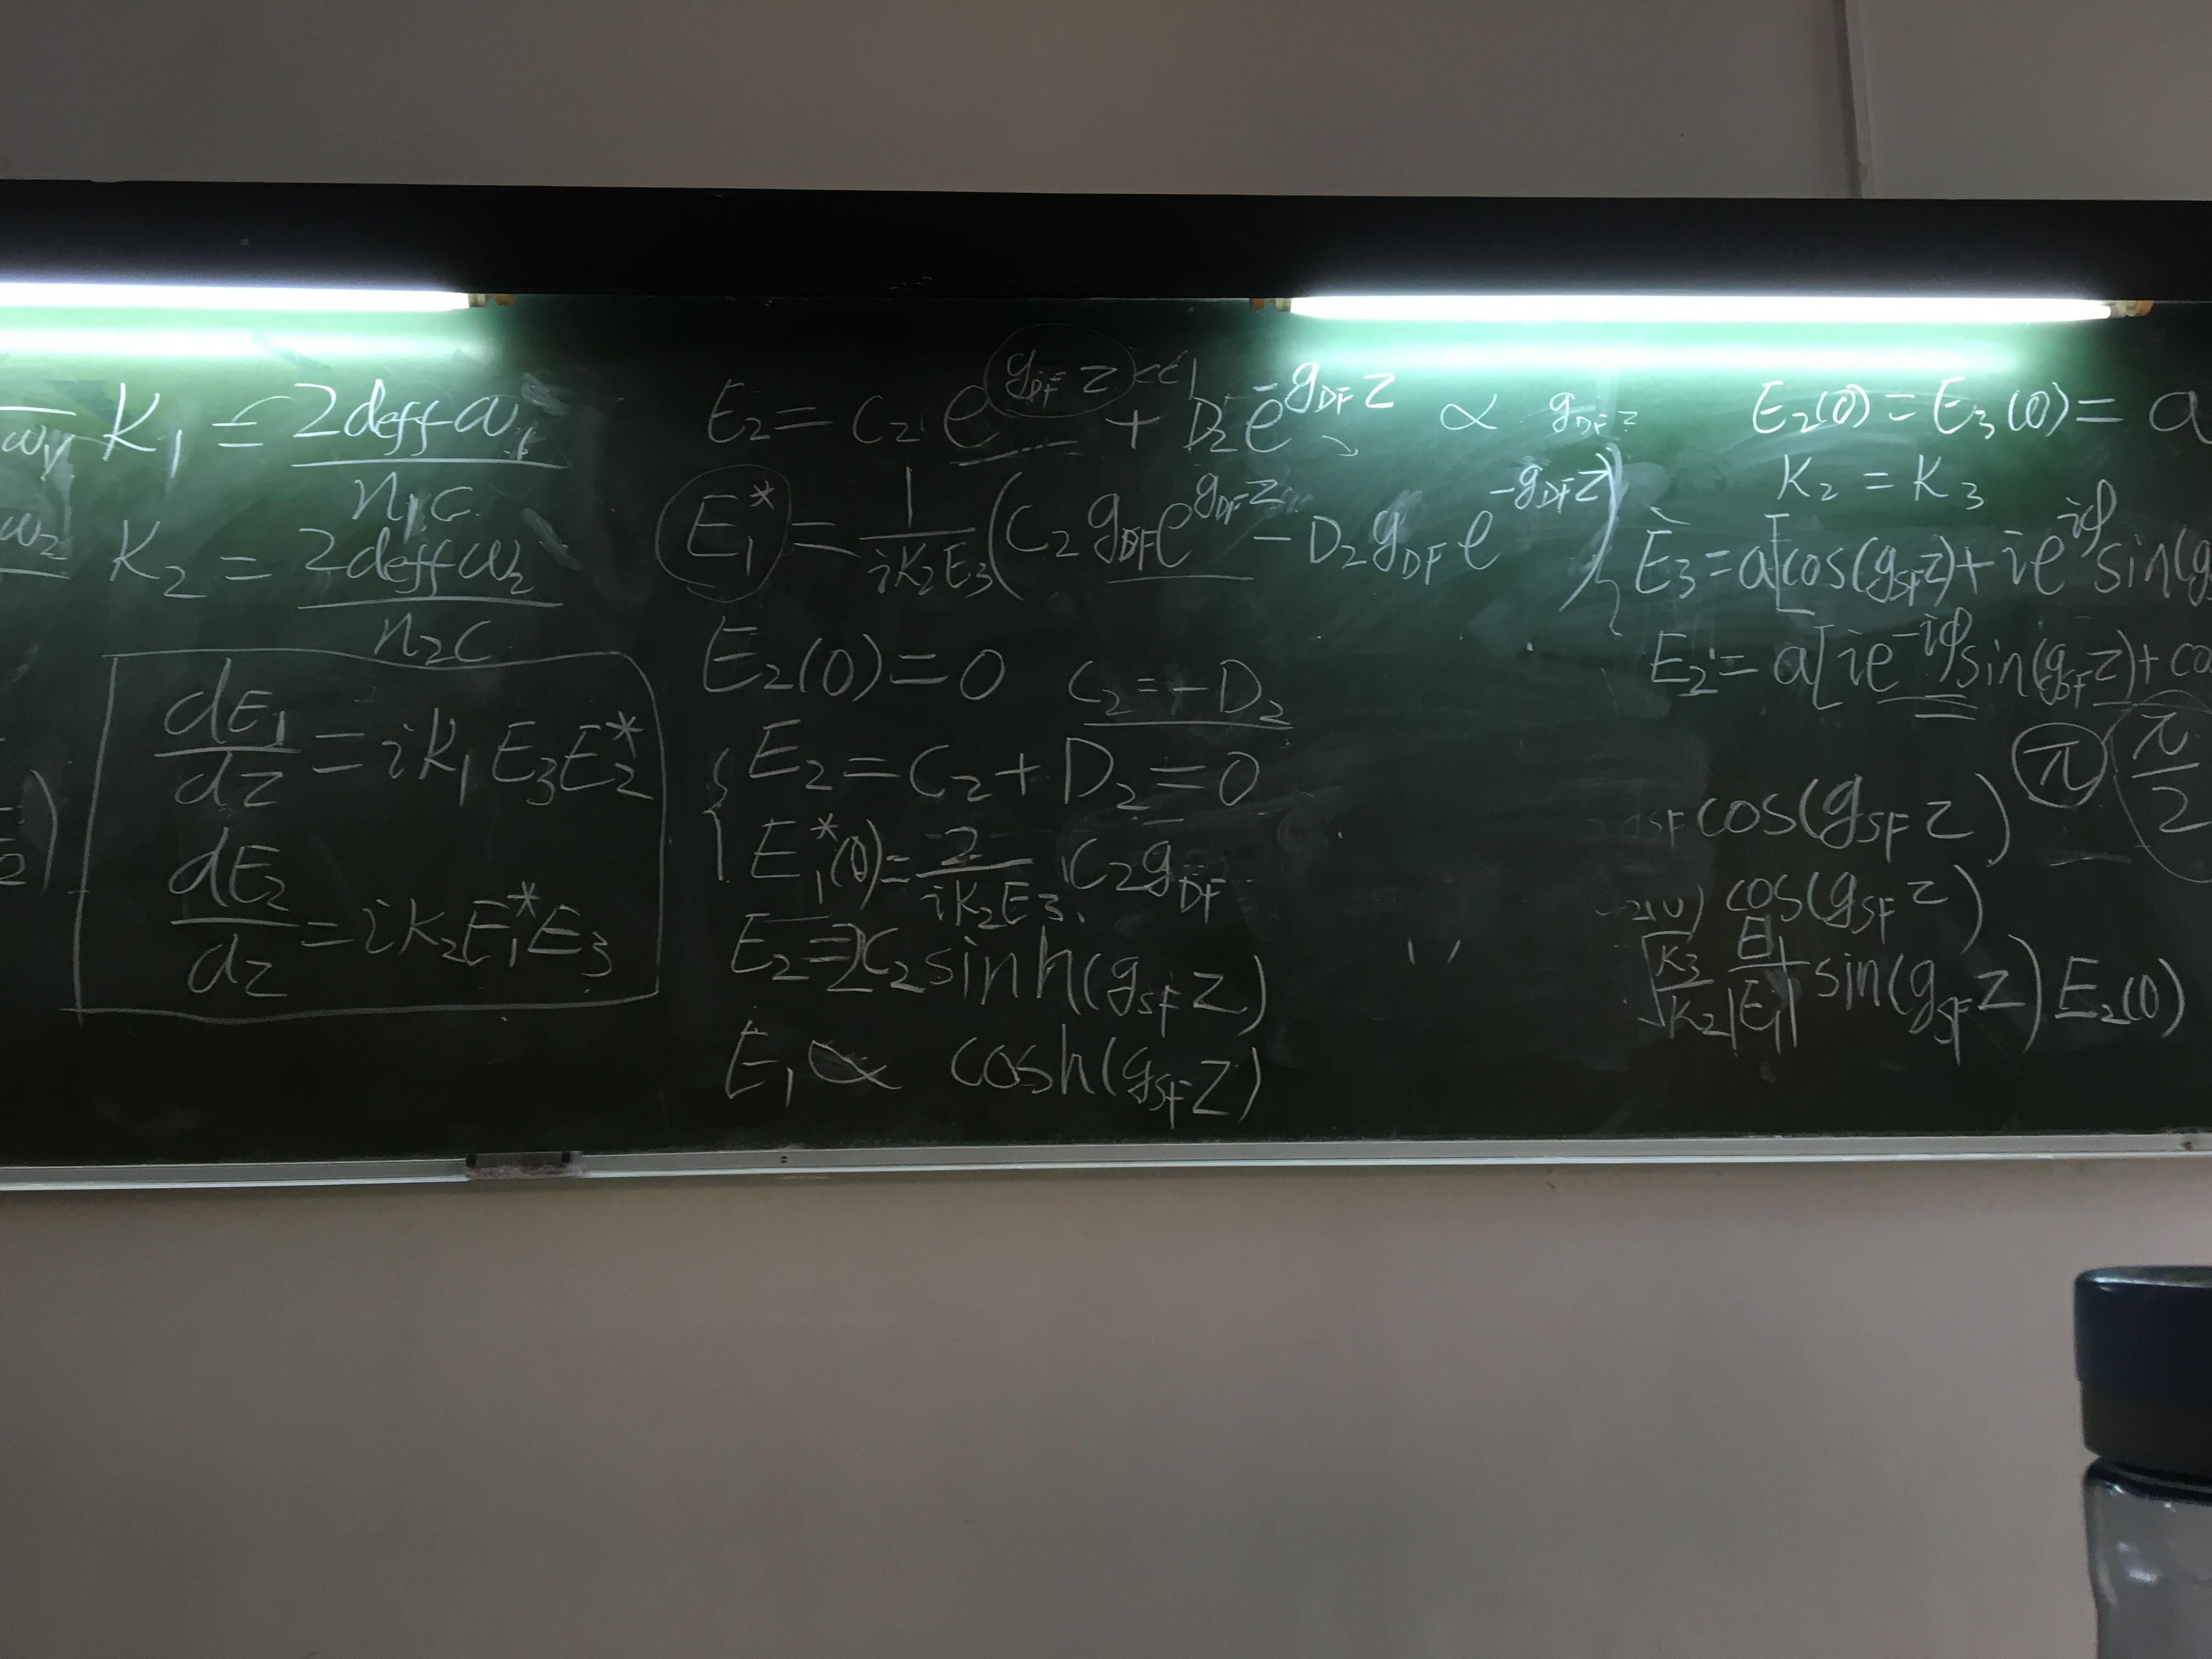 K₁ = 2deffω₁ / n₁c
K₂ = 2deffω₂ / n₂c
dE₁/dz = iK₁E₃E₂*
dE₂/dz = iK₂E₁*E₃
E₂ = C₂e^(g_DF z) <<1 + D₂e^(-g_DF z) ∝ g_DF z
E₁* = 1/(iK₂E₃) (C₂ g_DF e^(g_DF z) - D₂ g_DF e^(-g_DF z))
E₂(0) = 0 C₂ = -D₂
E₂ = C₂ + D₂ = 0
E₁*(0) = 2/(iK₂E₃) C₂g_DF
E₂ = 2C₂ sinh(g_SF z)
E₁ ∝ cosh(g_SF z)
E₂(0) = E₃(0) = a
K₂ = K₃
E₃ = a[cos(g_SF z) + ie^(iφ) sin(g
E₂ = a[ie^(-iφ) sin(g_SF z) + co
π π/2
cos(g_SF z)
cos(g_SF z)
√(K₃/K₂) E₁/|E₁| sin(g_SF z) E₂(0)